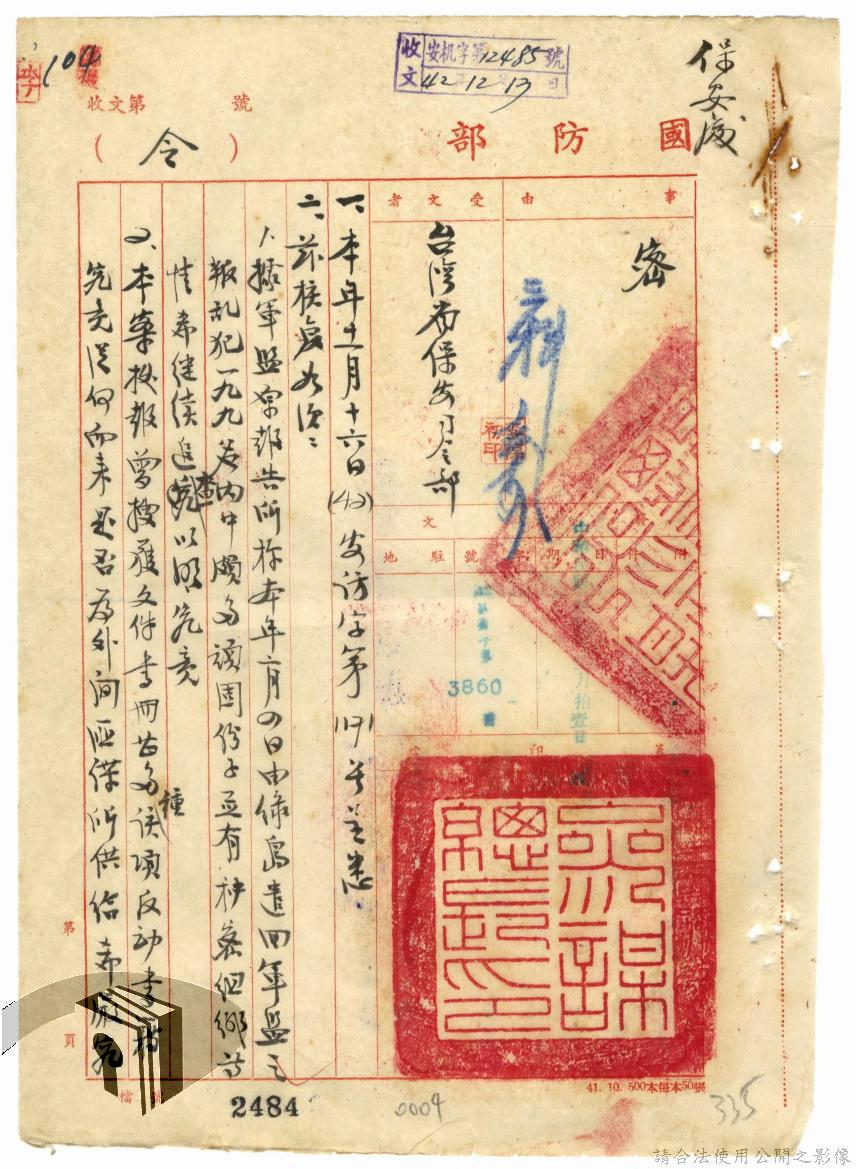 保安處
收文 安机字第12485號
42 12 13 日
104
收文第 號
國防部
(令)
事由
受文者
密
台灣省保安司令部
文
附件
日期
字號
駐地
月拾壹日
3860
號
一、本年十一月十六日(42)安訪字第1171号呈悉
二、茲核復如次：
1.據軍監宗報告所称本年六月四日由綠島遣回軍監之
叛乱犯一九九名內中頗多頑固份子並有秘密組織等
情希継续追查以明究竟
2.本案據報曾搜獲文件書冊甚多该項反动書籍
種
究竟從何而来是否為外间匪諜所供给希嚴究
參謀總長之印
第
頁
檔 號
41. 10. 500本每本50張
2484
0004
335
請合法使用公開之影像